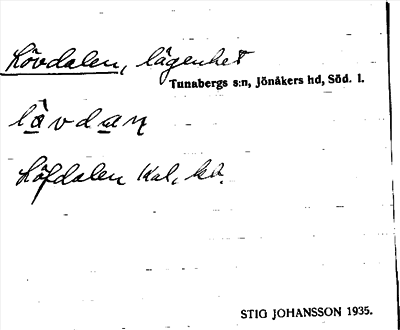 Lövdalen, lägenhet
Tunabergs s:n, Jönåkers hd, Söd. l.
lǻvdaɳ
Löfdalen Kal, kv.
STIG JOHANSSON 1935.